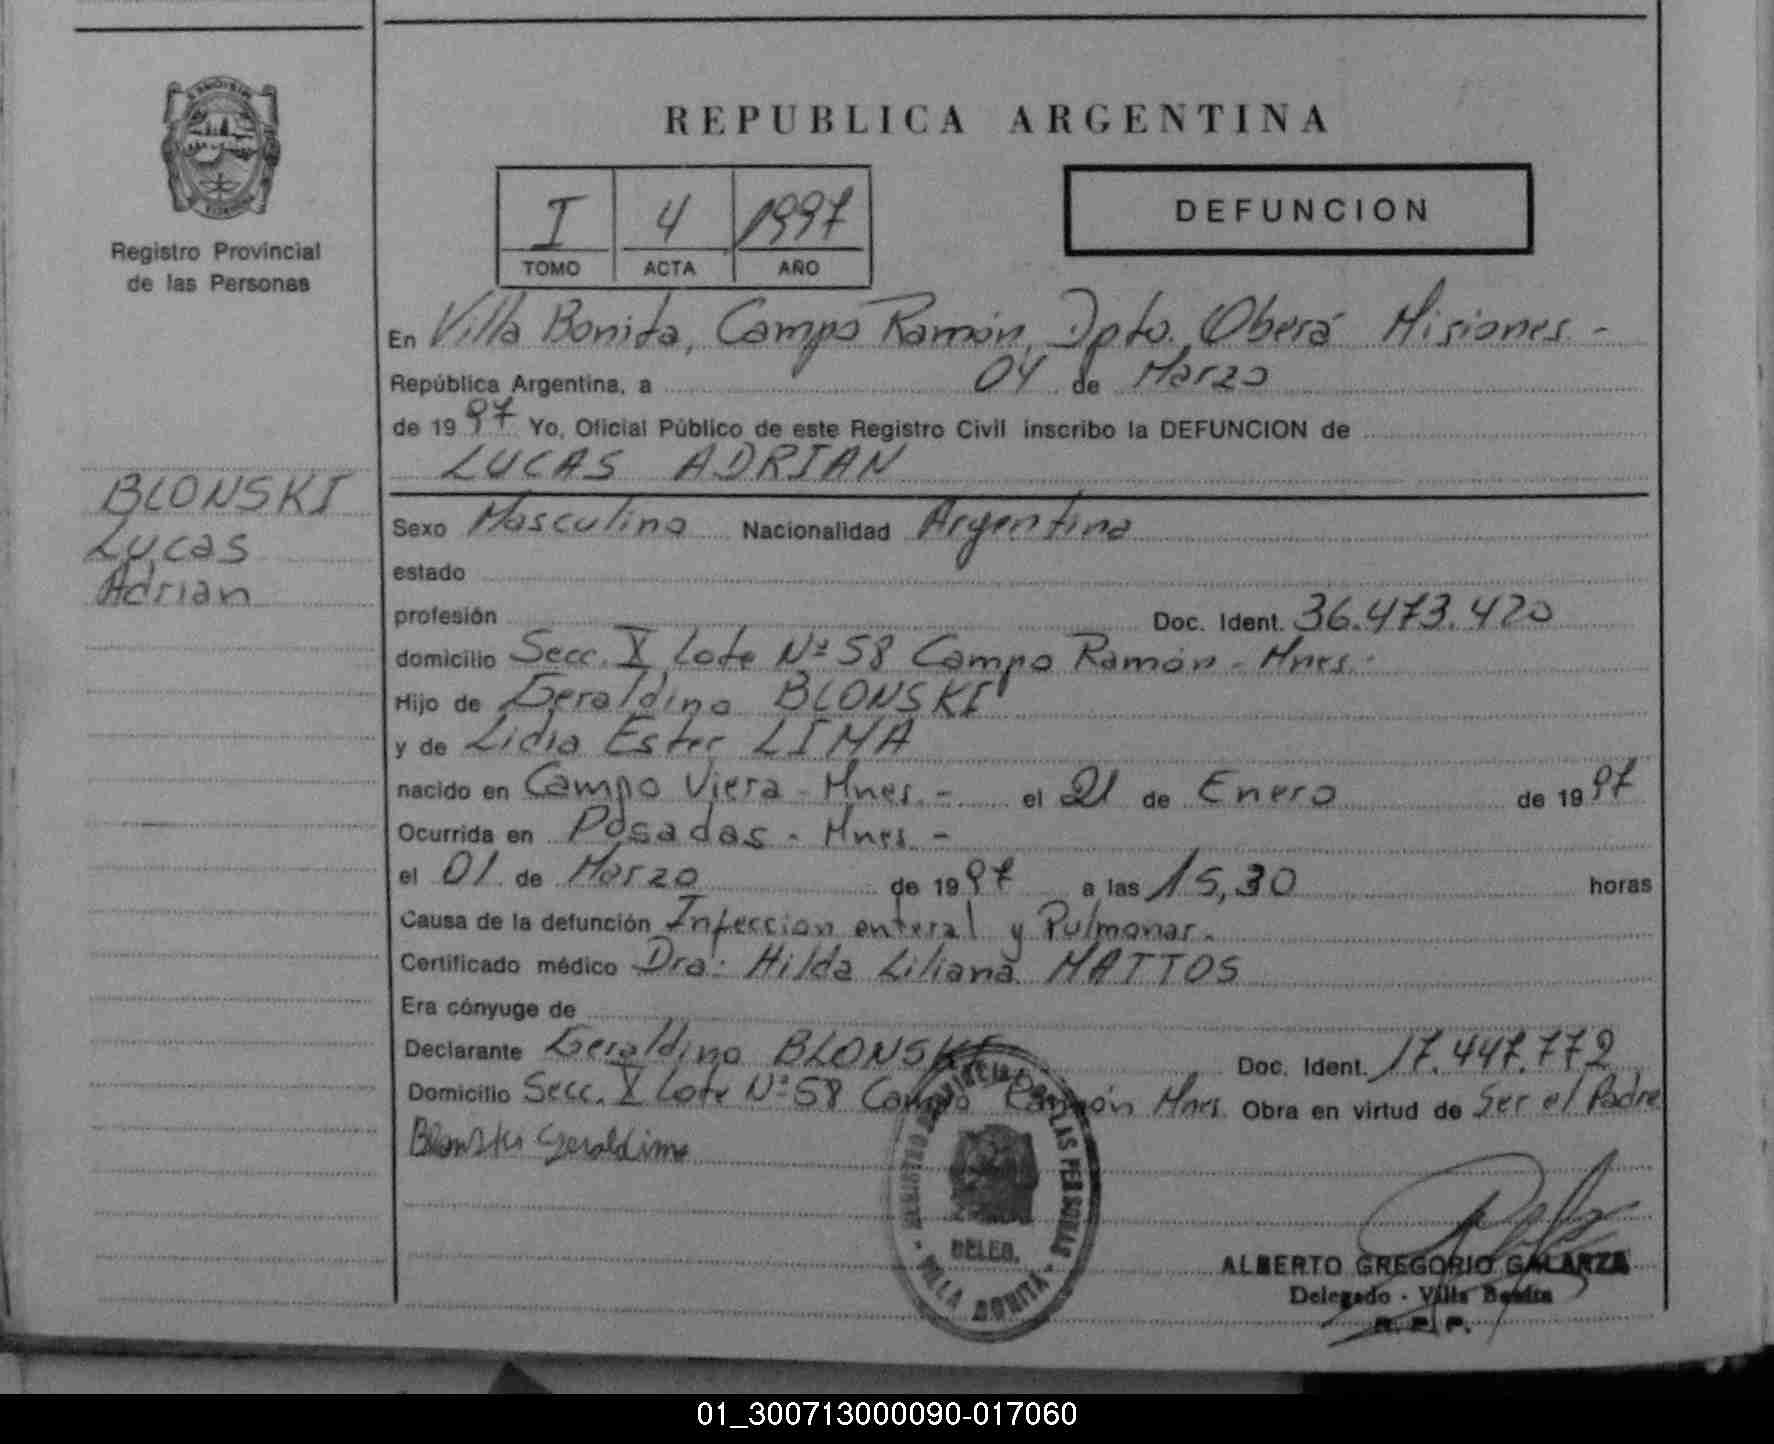 REPUBLICA ARGENTINA
Registro Provincial
de las Personas
I 4 1997
TOMO ACTA AÑO
DEFUNCION
En Villa Bonita, Campo Ramón, Dpto. Oberá Misiones -
República Argentina, a 04 de Marzo
de 1997 Yo, Oficial Público de este Registro Civil inscribo la DEFUNCION de
LUCAS ADRIAN
BLONSKI
Lucas
Adrian
Sexo Masculino Nacionalidad Argentina
estado
profesión Doc. Ident. 36.473.420
domicilio Secc. X Lote Nº 58 Campo Ramón - Mnes.-
Hijo de Geraldino BLONSKI
y de Lidia Ester LIMA
nacido en Campo Viera - Mnes. - el 21 de Enero de 1997
Ocurrida en Posadas - Mnes -
el 01 de Marzo de 1997 a las 15,30 horas
Causa de la defunción Infeccion enteral y Pulmonar.
Certificado médico Dra: Hilda Liliana MATTOS
Era cónyuge de
Declarante Geraldino BLONSKI Doc. Ident. 17.447.772
Domicilio Secc. X Lote Nº 58 Campo Ramón Mnes Obra en virtud de Ser el Padre
Blonski Geraldino
REGISTRO PROVINCIAL DE LAS PERSONAS
DELEG.
- VILLA BONITA -
ALBERTO GREGORIO GALARZA
Delegado - Villa Bonita
R. P. P.
01_300713000090-017060